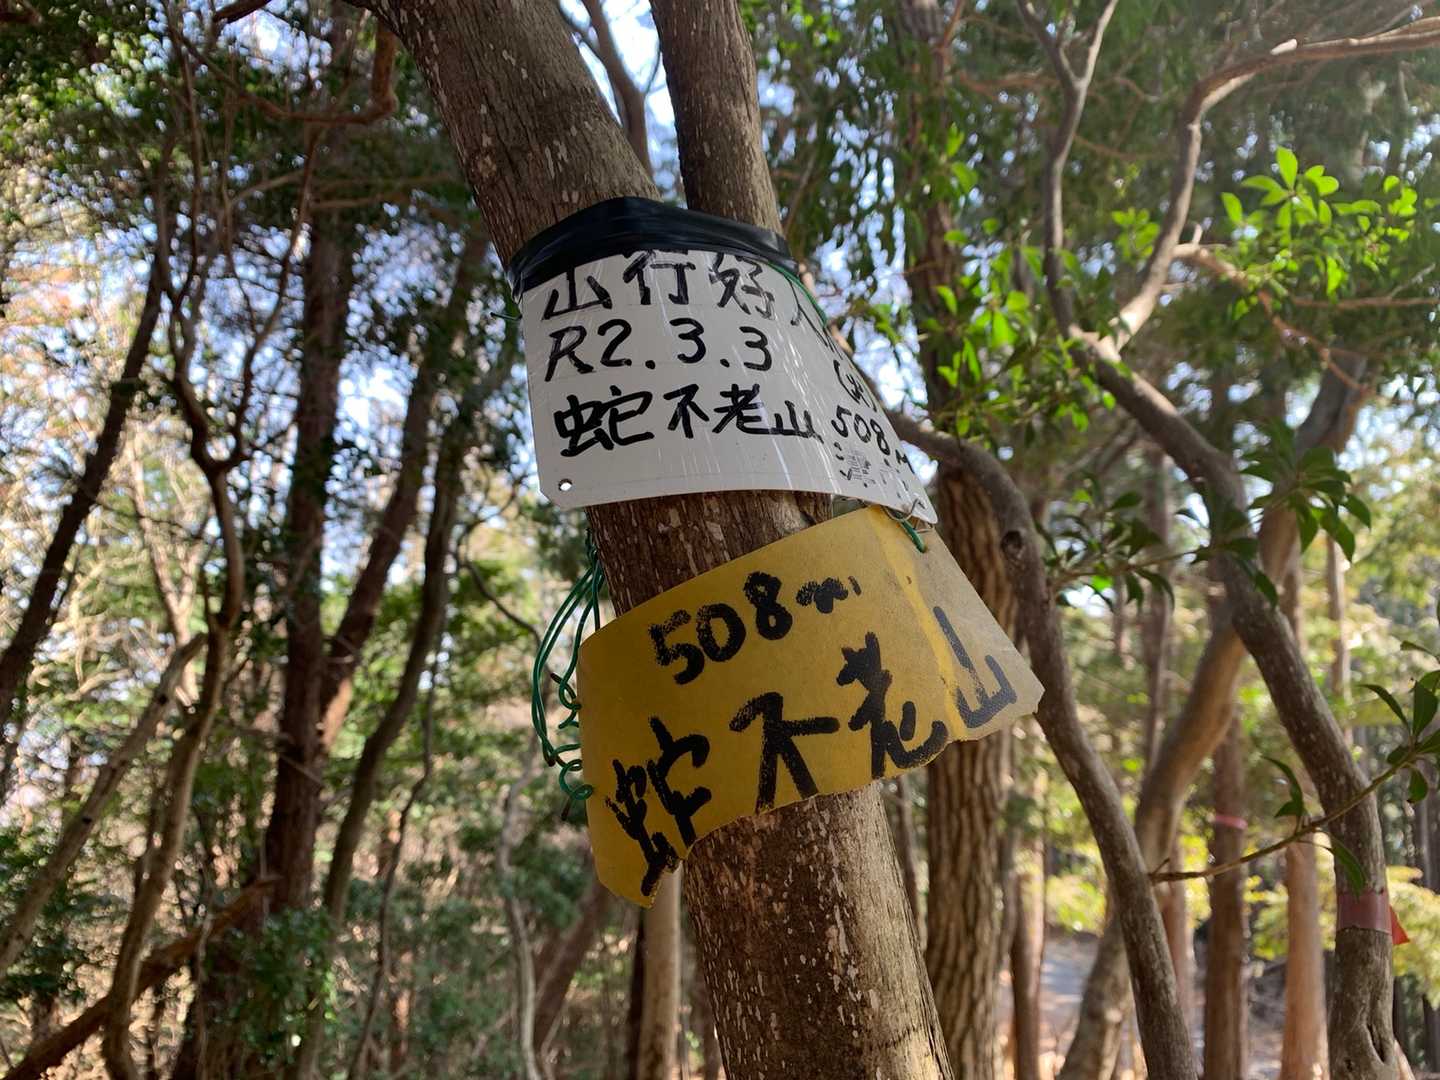 山行好人
R2.3.3
蛇不老山 508m
508m
蛇不老山